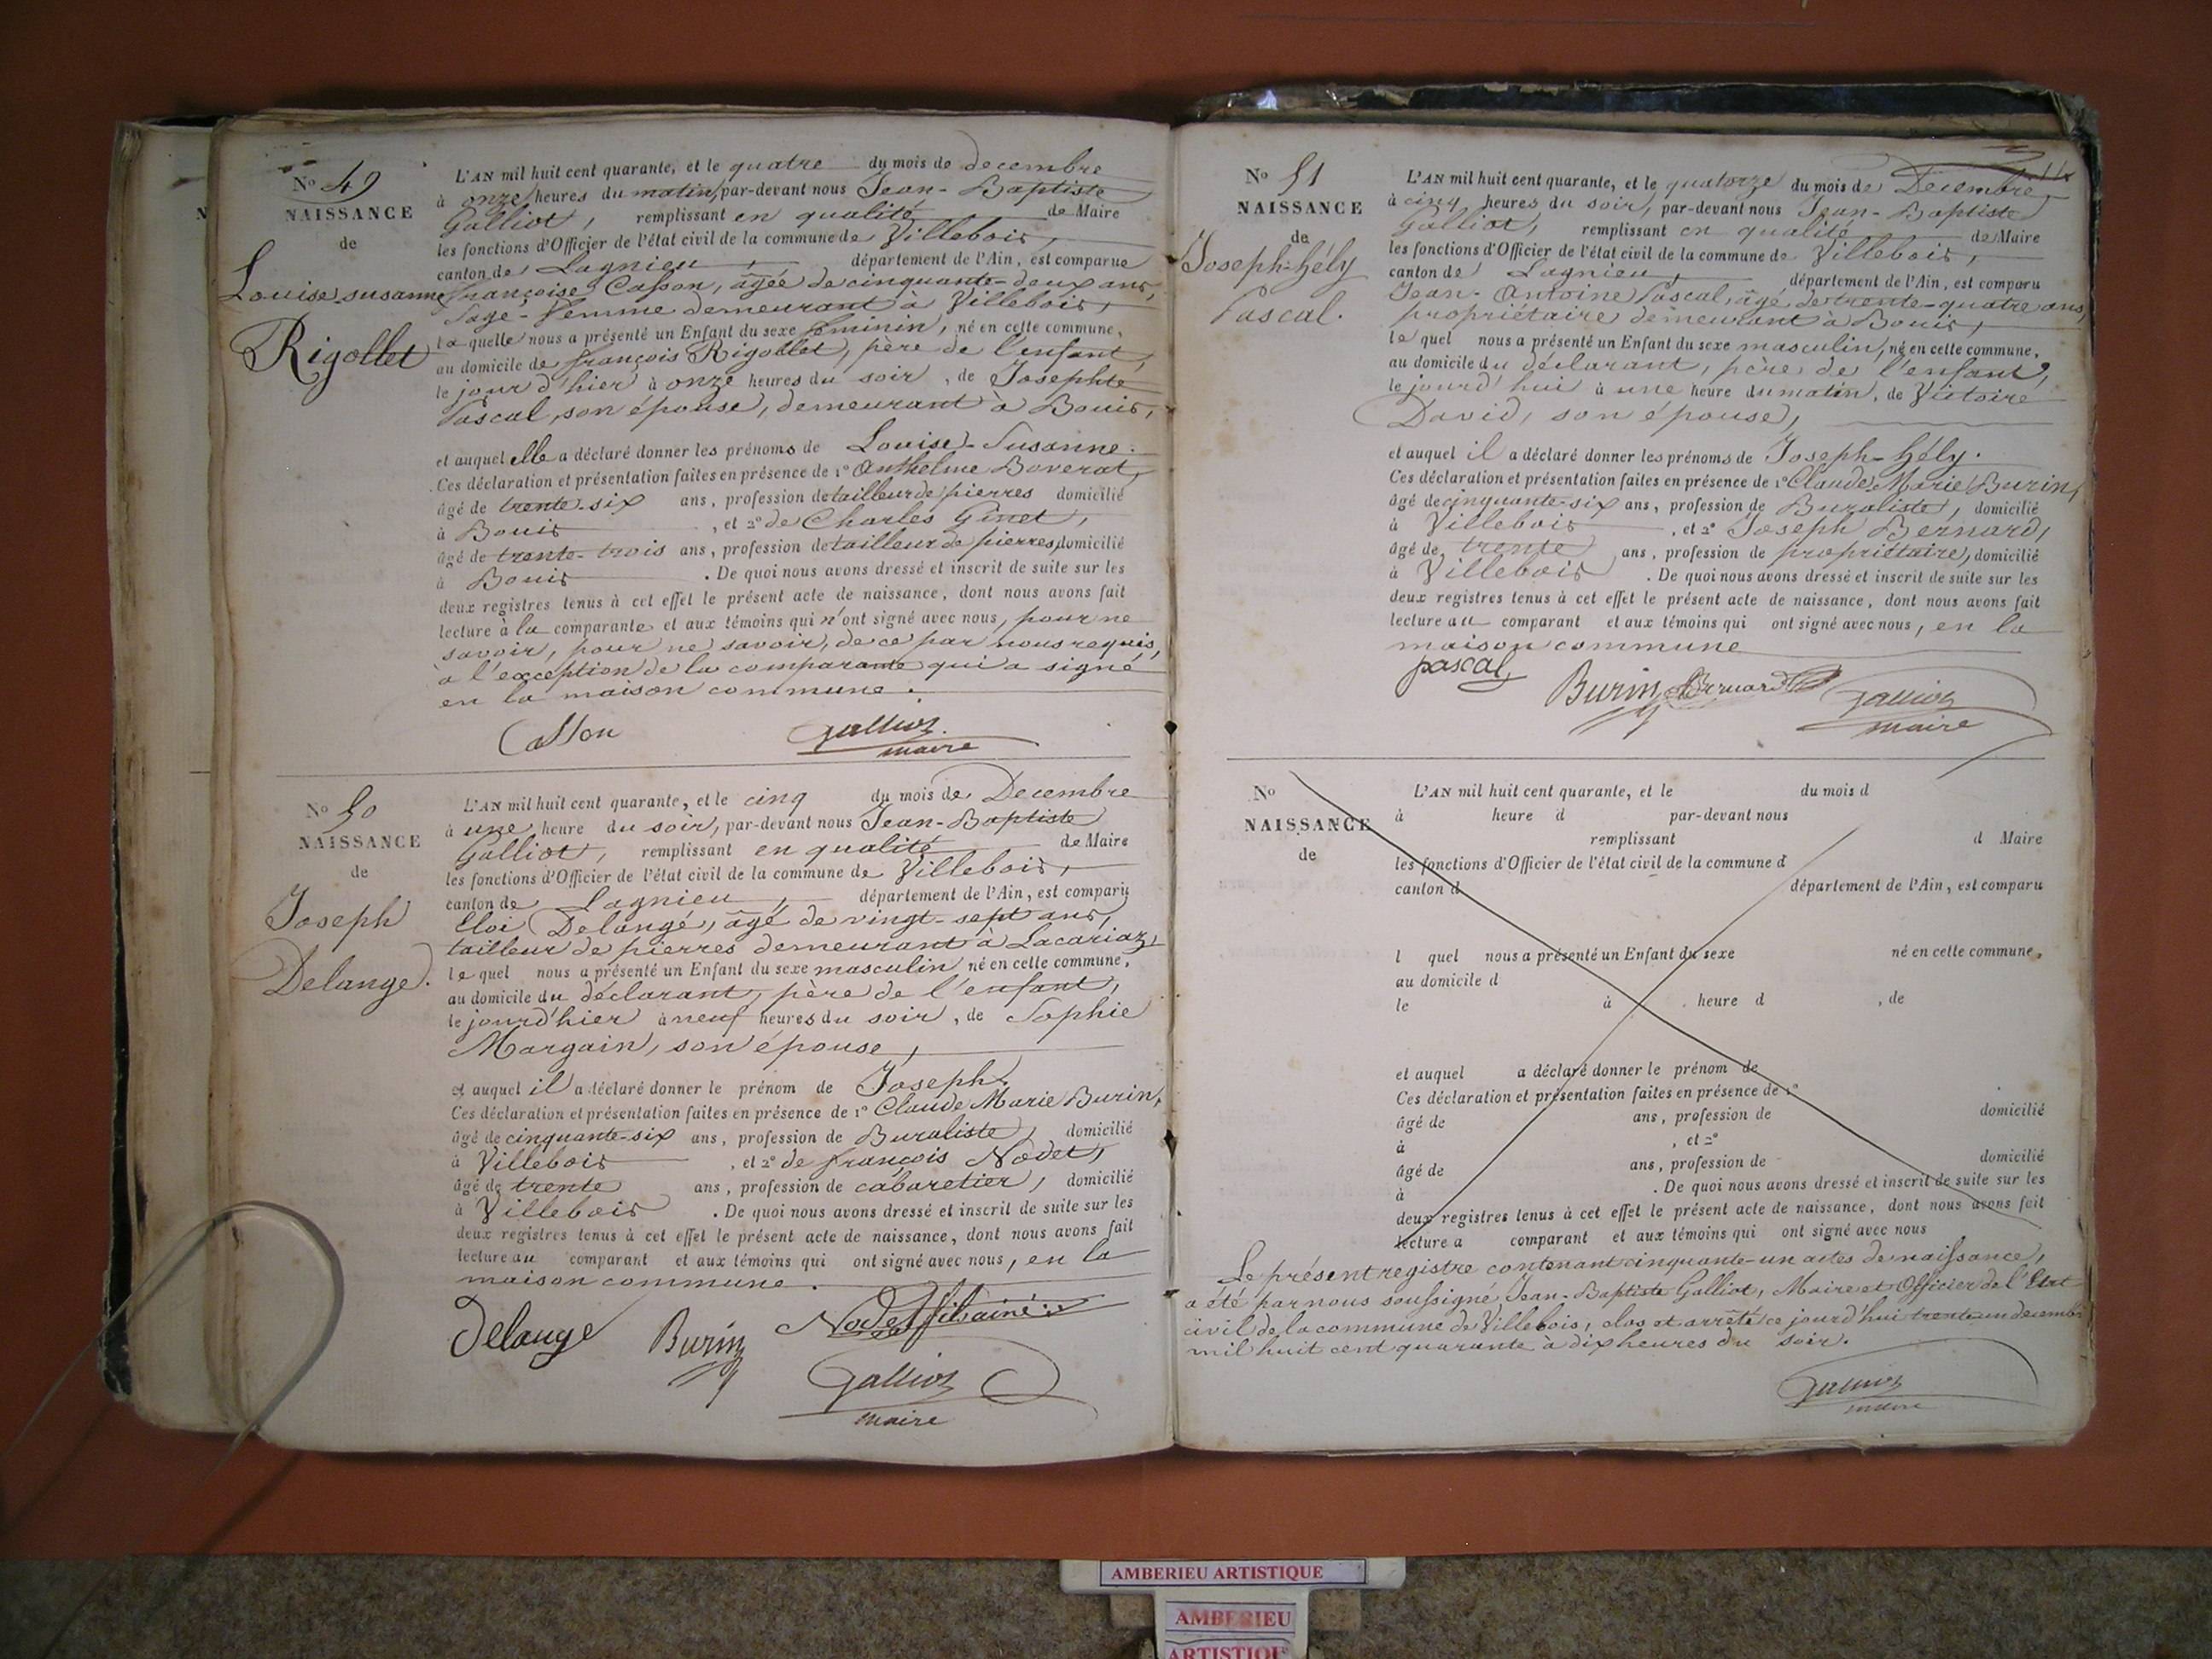 N
No 49
NAISSANCE
de
Louise susanne
Rigollet
L'AN mil huit cent quarante, et le quatre du mois de decembre
à onze heures du matin, par-devant nous Jean-Baptiste
Galliot, remplissant en qualité de Maire
les fonctions d'Officier de l'état civil de la commune de Villebois,
canton de Lagnieu, département de l'Ain, est comparue
françoise Casson, âgée de cinquante-deux ans,
Sage-femme demeurant à Villebois,
la quelle nous a présenté un Enfant du sexe féminin, né en cette commune,
au domicile de françois Rigollet, père de l'enfant,
le jour d'hier à onze heures du soir, de Josephte
Pascal, son épouse, demeurant à Bouis,
et auquel elle a déclaré donner les prénoms de Louise-Susanne.
Ces déclaration et présentation faites en présence de 1º Anthelme Boverat,
âgé de trente-six ans, profession de tailleur de pierres domicilié
à Bouis, et 2º de Charles Ginet,
âgé de trente-trois ans, profession de tailleur de pierres, domicilié
à Bouis. De quoi nous avons dressé et inscrit de suite sur les
deux registres tenus à cet effet le présent acte de naissance, dont nous avons fait
lecture à la comparante et aux témoins qui n'ont signé avec nous, pour ne
savoir, pour ne savoir, de ce par nous requis,
à l'exception de la comparante qui a signé
en la maison commune.
Casson Galliot
maire
No 50
NAISSANCE
de
Joseph
Delange.
L'AN mil huit cent quarante, et le cinq du mois de Decembre
à une heure du soir, par-devant nous Jean-Baptiste
Galliot, remplissant en qualité de Maire
les fonctions d'Officier de l'état civil de la commune de Villebois,
canton de Lagnieu, département de l'Ain, est comparu
Eloi Delangé, âgé de vingt-sept ans,
tailleur de pierres demeurant à Lacariaz,
le quel nous a présenté un Enfant du sexe masculin né en cette commune,
au domicile du déclarant, père de l'enfant,
le jourd'hier à neuf heures du soir, de Sophie
Margain, son épouse,
et auquel il a déclaré donner le prénom de Joseph.
Ces déclaration et présentation faites en présence de 1º Claude Marie Burin,
âgé de cinquante-six ans, profession de Buraliste, domicilié
à Villebois, et 2º de françois Nodet,
âgé de trente ans, profession de cabaretier, domicilié
à Villebois. De quoi nous avons dressé et inscrit de suite sur les
deux registres tenus à cet effet le présent acte de naissance, dont nous avons fait
lecture au comparant et aux témoins qui ont signé avec nous, en la
maison commune.
Delange Burin Nodet fils ainé
Galliot
maire
No 51
NAISSANCE
de
Joseph-hély
Pascal.
L'AN mil huit cent quarante, et le quatorze du mois de Decembre,
à cinq heures du soir, par-devant nous Jean-Baptiste
Galliot, remplissant en qualité de Maire
les fonctions d'Officier de l'état civil de la commune de Villebois,
canton de Lagnieu, département de l'Ain, est comparu
Jean-Antoine Pascal, âgé de trente-quatre ans,
propriétaire demeurant à Bouis,
le quel nous a présenté un Enfant du sexe masculin, né en cette commune,
au domicile du déclarant, père de l'enfant,
le jourd'hui à une heure du matin, de Victoire
David, son épouse,
et auquel il a déclaré donner les prénoms de Joseph-hély.
Ces déclaration et présentation faites en présence de 1º Claude Marie Burin,
âgé de cinquante-six ans, profession de Buraliste, domicilié
à Villebois, et 2º Joseph Bernard,
âgé de trente ans, profession de propriétaire, domicilié
à Villebois. De quoi nous avons dressé et inscrit de suite sur les
deux registres tenus à cet effet le présent acte de naissance, dont nous avons fait
lecture au comparant et aux témoins qui ont signé avec nous, en la
maison commune
pascal Burin Bernard Galliot
maire
No
NAISSANCE
de
L'AN mil huit cent quarante, et le du mois d
à heure d par-devant nous
remplissant d Maire
les fonctions d'Officier de l'état civil de la commune d
canton d département de l'Ain, est comparu
l quel nous a présenté un Enfant du sexe né en cette commune,
au domicile d
le à heure d , de
et auquel a déclaré donner le prénom de
Ces déclaration et présentation faites en présence de 1º
âgé de ans, profession de domicilié
à , et 2º
âgé de ans, profession de domicilié
à . De quoi nous avons dressé et inscrit de suite sur les
deux registres tenus à cet effet le présent acte de naissance, dont nous avons fait
lecture a comparant et aux témoins qui ont signé avec nous
Le présent registre contenant cinquante-un actes de naissance,
a été par nous soussigné, Jean-Baptiste Galliot, Maire et Officier de l'Etat
civil de la commune de Villebois, clos et arrêté ce jourd'hui trente un decembre
mil huit cent quarante à dix heures du soir.
Galliot
maire
AMBERIEU ARTISTIQUE
AMBERIEU
ARTISTIQUE